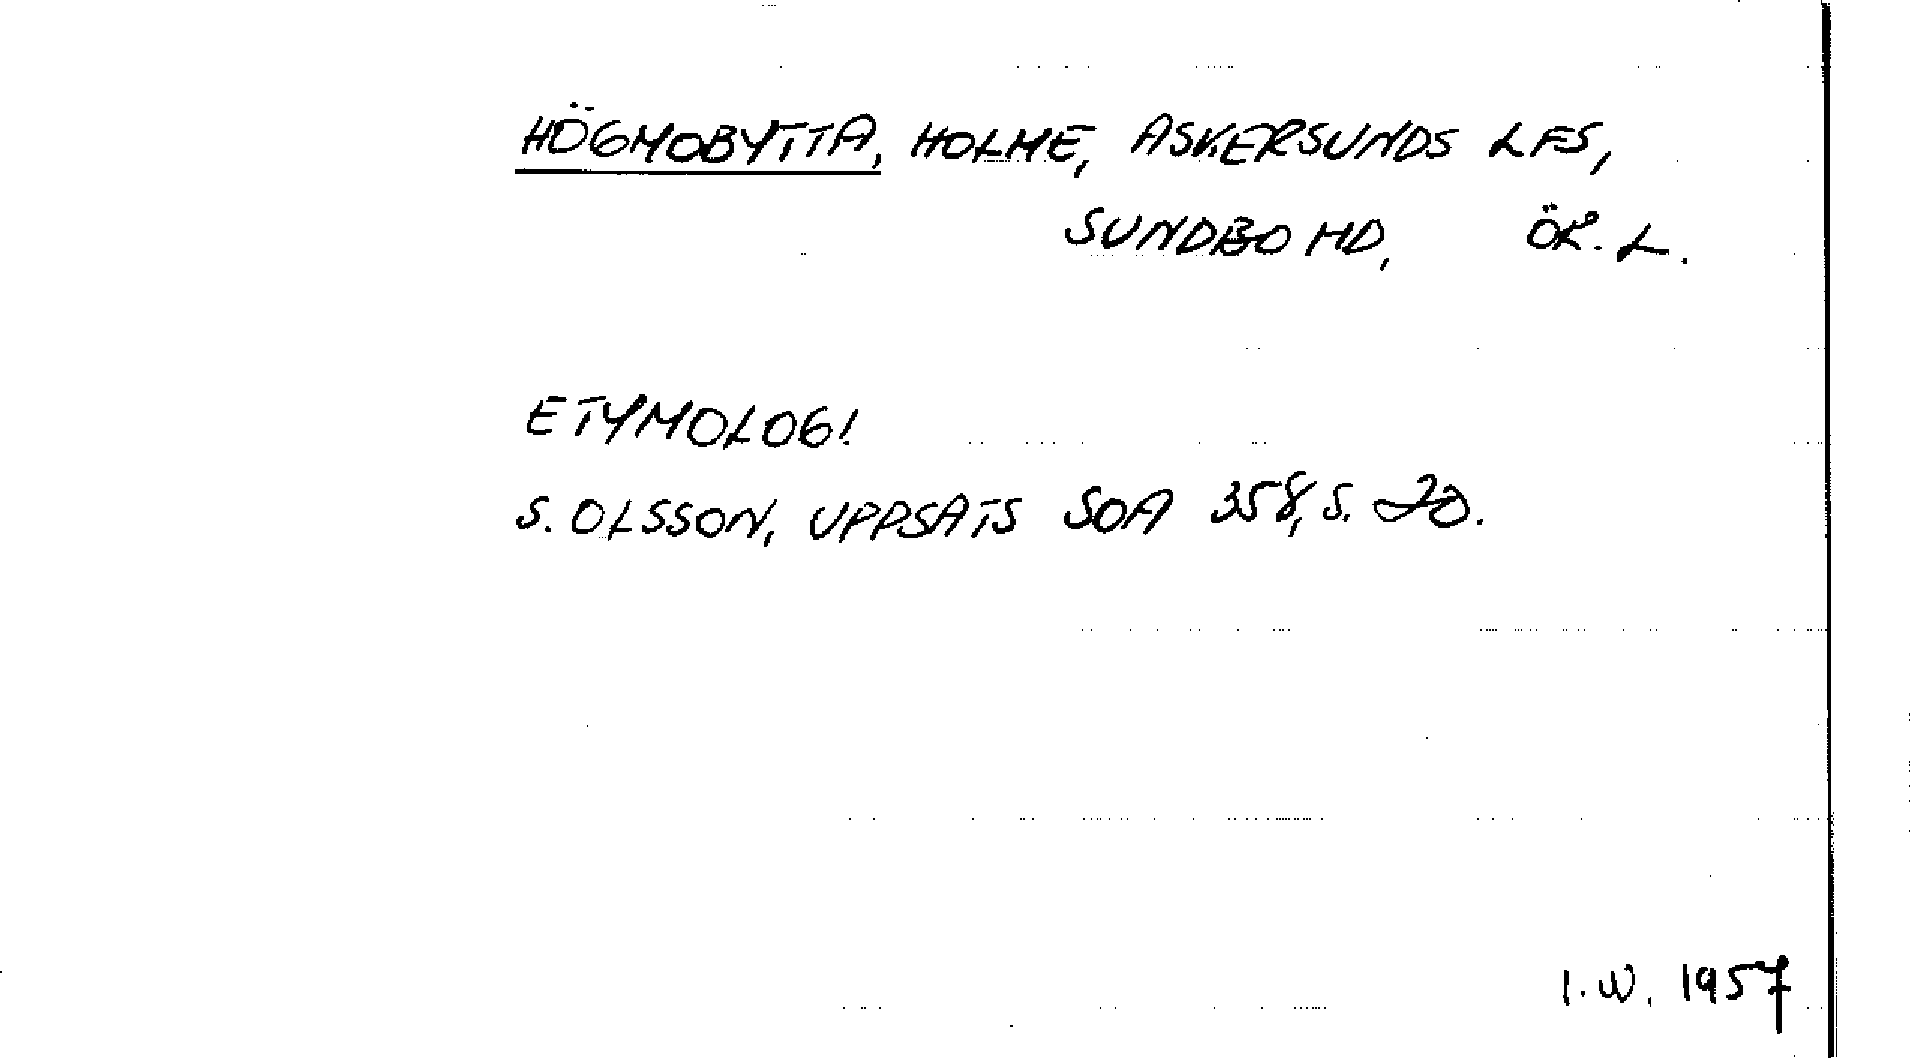 HÖGMOBYTTA, HOLME, ASKERSUNDS LFS,
SUNDBO HD, ÖR. L.
ETYMOLOGI
S. OLSSON, UPPSATS SOA 358, S. 20.
I.W. 1957